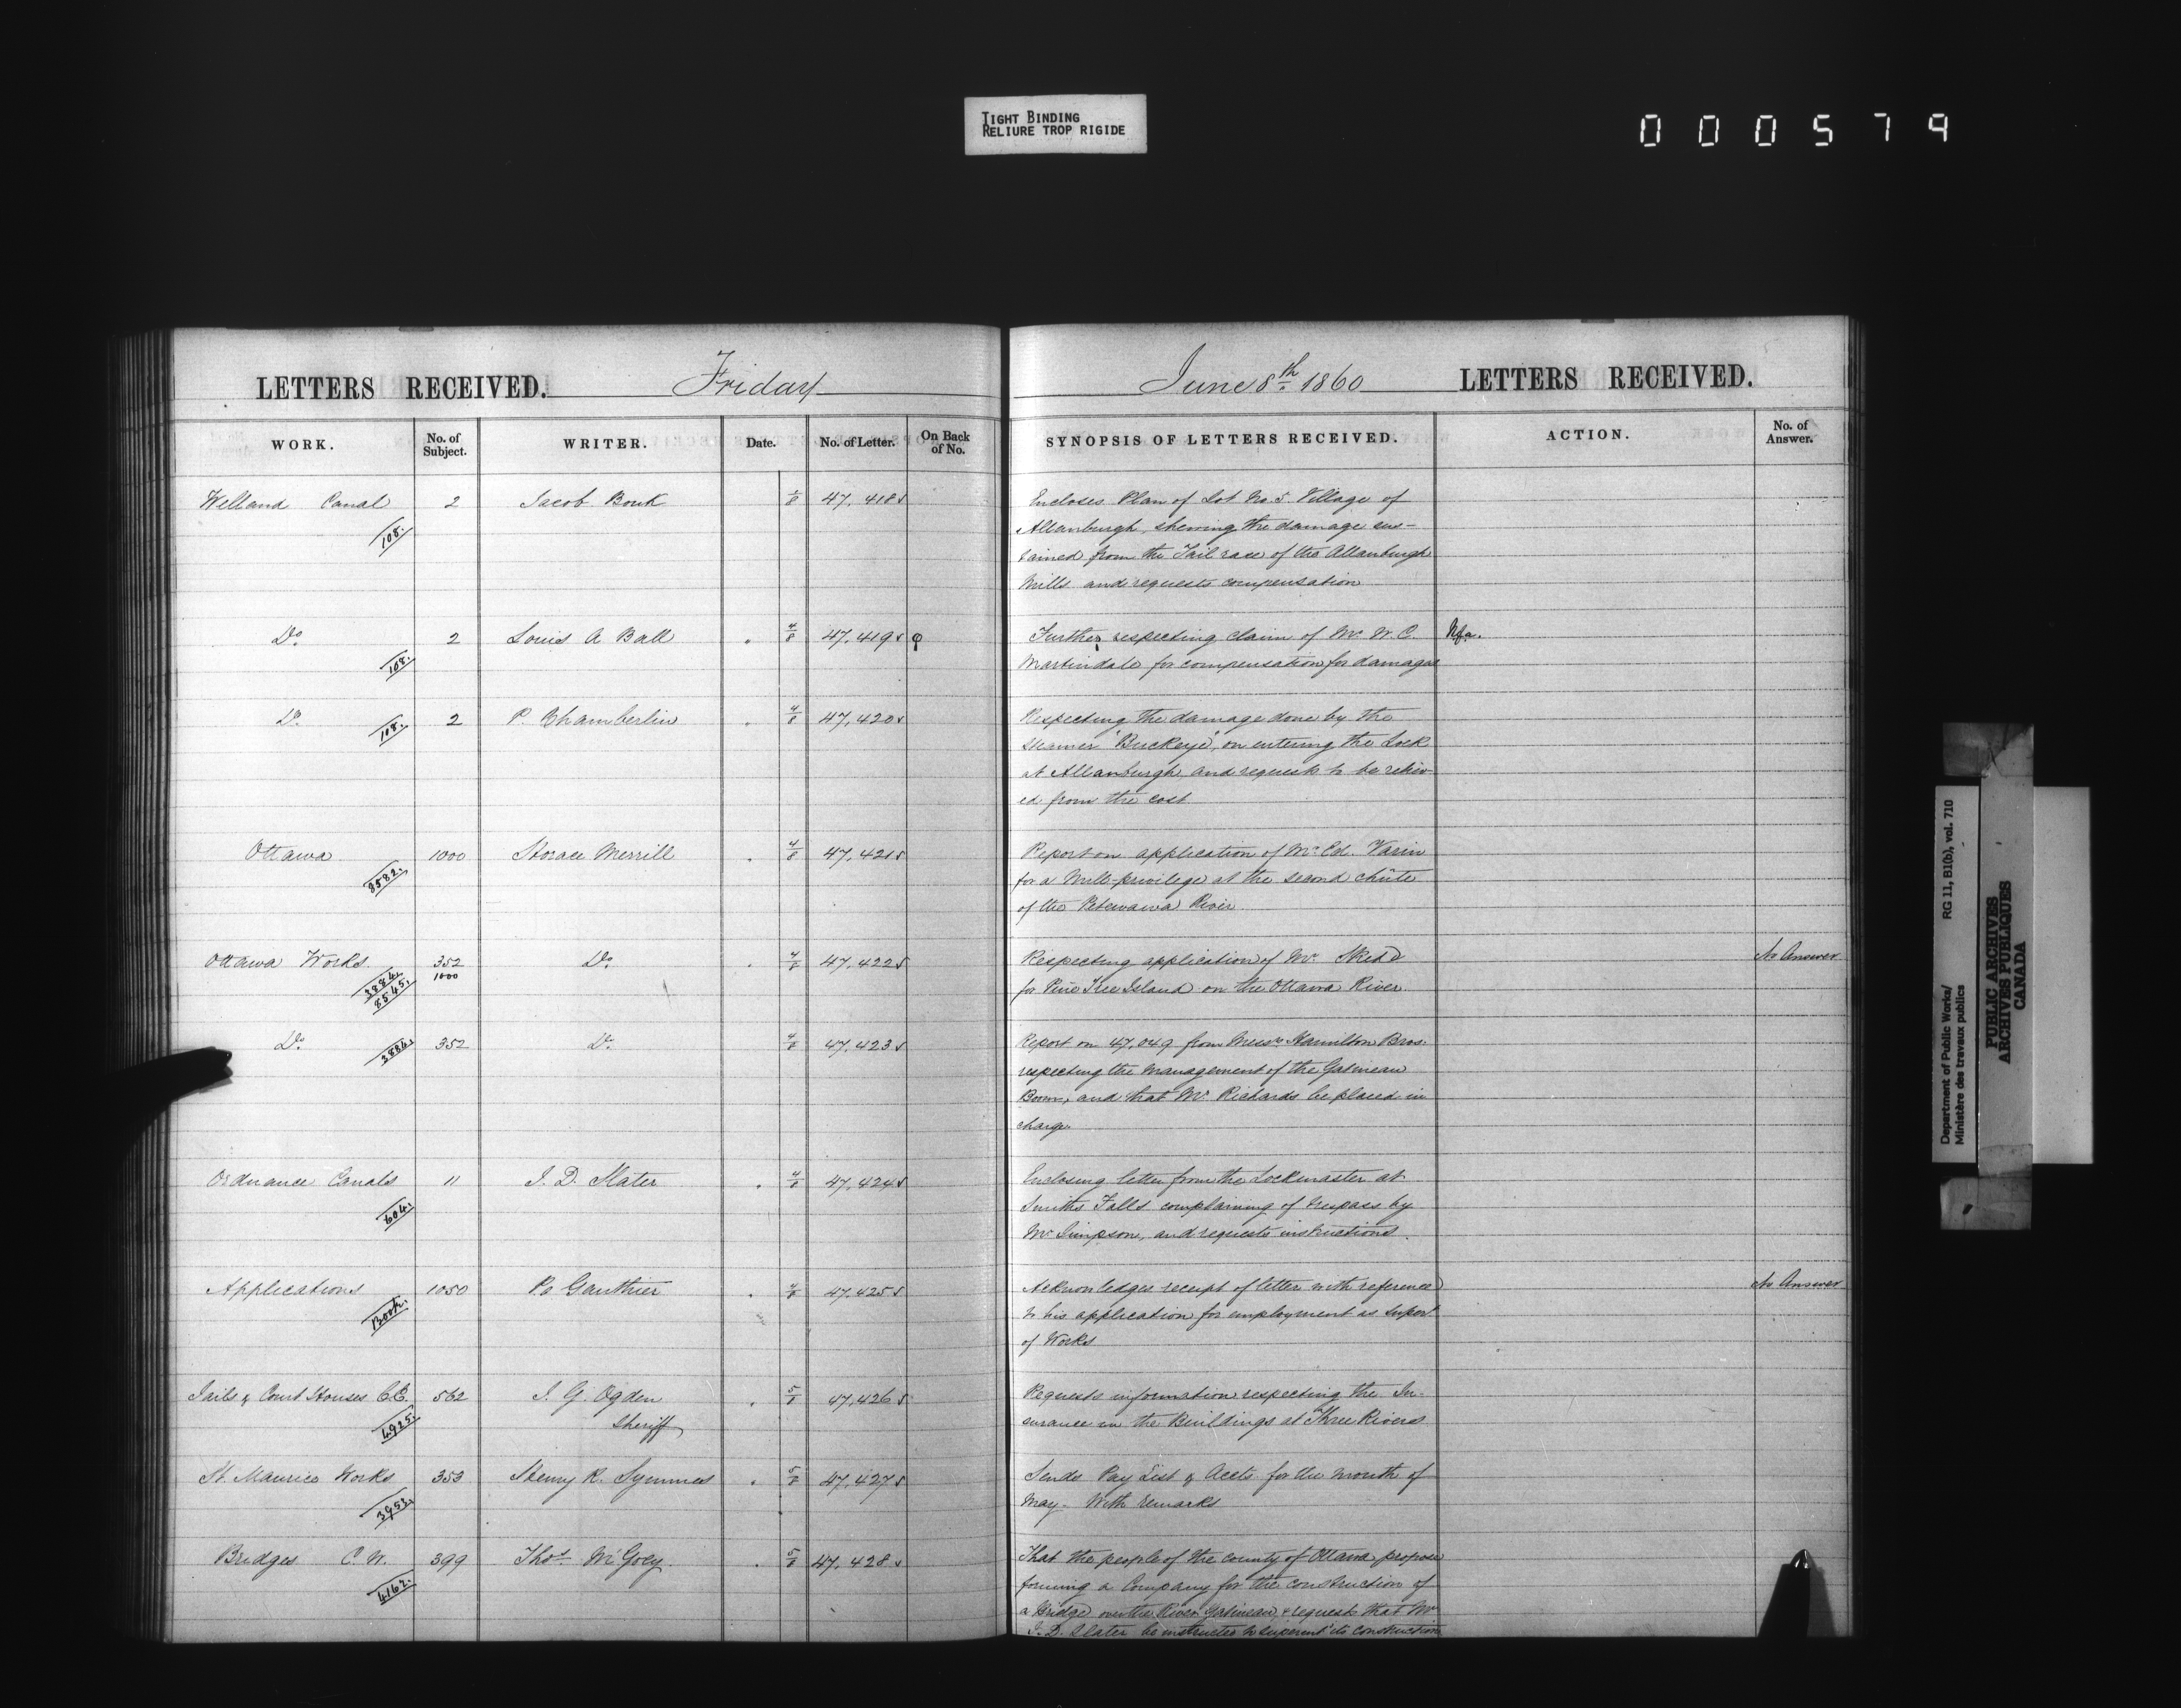 TIGHT BINDING
RELIURE TROP RIGIDE
000579
LETTERS RECEIVED. Friday
June 8th 1860 LETTERS RECEIVED.
WORK. No. of Subject. WRITER. Date. No. of Letter. On Back of No.
SYNOPSIS OF LETTERS RECEIVED. ACTION. No. of Answer.
Welland Canal 2 Jacob Bouk 47,418
108.
Encloses Plan of Lot No. 5. Village of
Allanburgh, shewing the damage sus-
tained from the Tail race of the Allanburgh
Mills and requests compensation
Do 2 Louis A Ball 4/8 47,419
108.
Further respecting claim of Mr W. C. Nfa.
Martindale for compensation for damages
Do 2 P. Chamberlin 4/8 47,420
108.
Respecting the damage done by the
steamer "Buckeye", on entering the Lock
at Allanburgh, and requests to be reliev-
ed from the cost
Ottawa 1000 Horace Merrill 4/8 47,421
8582.
Report on application of Mr Ed. Varin
for a Mill-privilege at the second chûte
of the Petewawa River.
Ottawa Works. 352 Do 4/8 47,422
1000
3884.
8545.
Respecting application of Mr Skead No Answer
for Pine Tree Island on the Ottawa River.
Do 352 Do 4/8 47,423
3884.
Report on 47,049 from Messrs Hamilton Bros.
respecting the management of the Gatineau
Boom, and that Mr Richards be placed in
charge.
Ordnance Canals 11 J. D. Slater 4/8 47,424
604.
Enclosing letter from the Lockmaster at
Smiths Falls complaining of trespass by
Mr Simpson, and requests instructions.
Applications 1050 Gauthier 4/8 47,425
Book.
Acknowledges receipt of letter with reference No Answer
to his application for employment as Supert
of Works
Jails & Court Houses C.E. 562 I. G. Ogden 5/8 47,426
4925. Sheriff
Requests information respecting the In-
surance in the Buildings at Three Rivers
St. Maurice Works 353 Henry R. Symmes 5/8 47,427
3953.
Sends Pay List & Accts for the month of
May. With remarks
Bridges C. W. 399 Thos McGoey 5/8 47,428
4162.
That the people of the county of Ottawa propose
forming a Company for the construction of
a Bridge over the River Gatineau, & requests that Mr
J. D. Slater be instructed to superintd its construction
Department of Public Works/ RG 11, B1(b), vol. 710
Ministère des travaux publics
PUBLIC ARCHIVES
ARCHIVES PUBLIQUES
CANADA